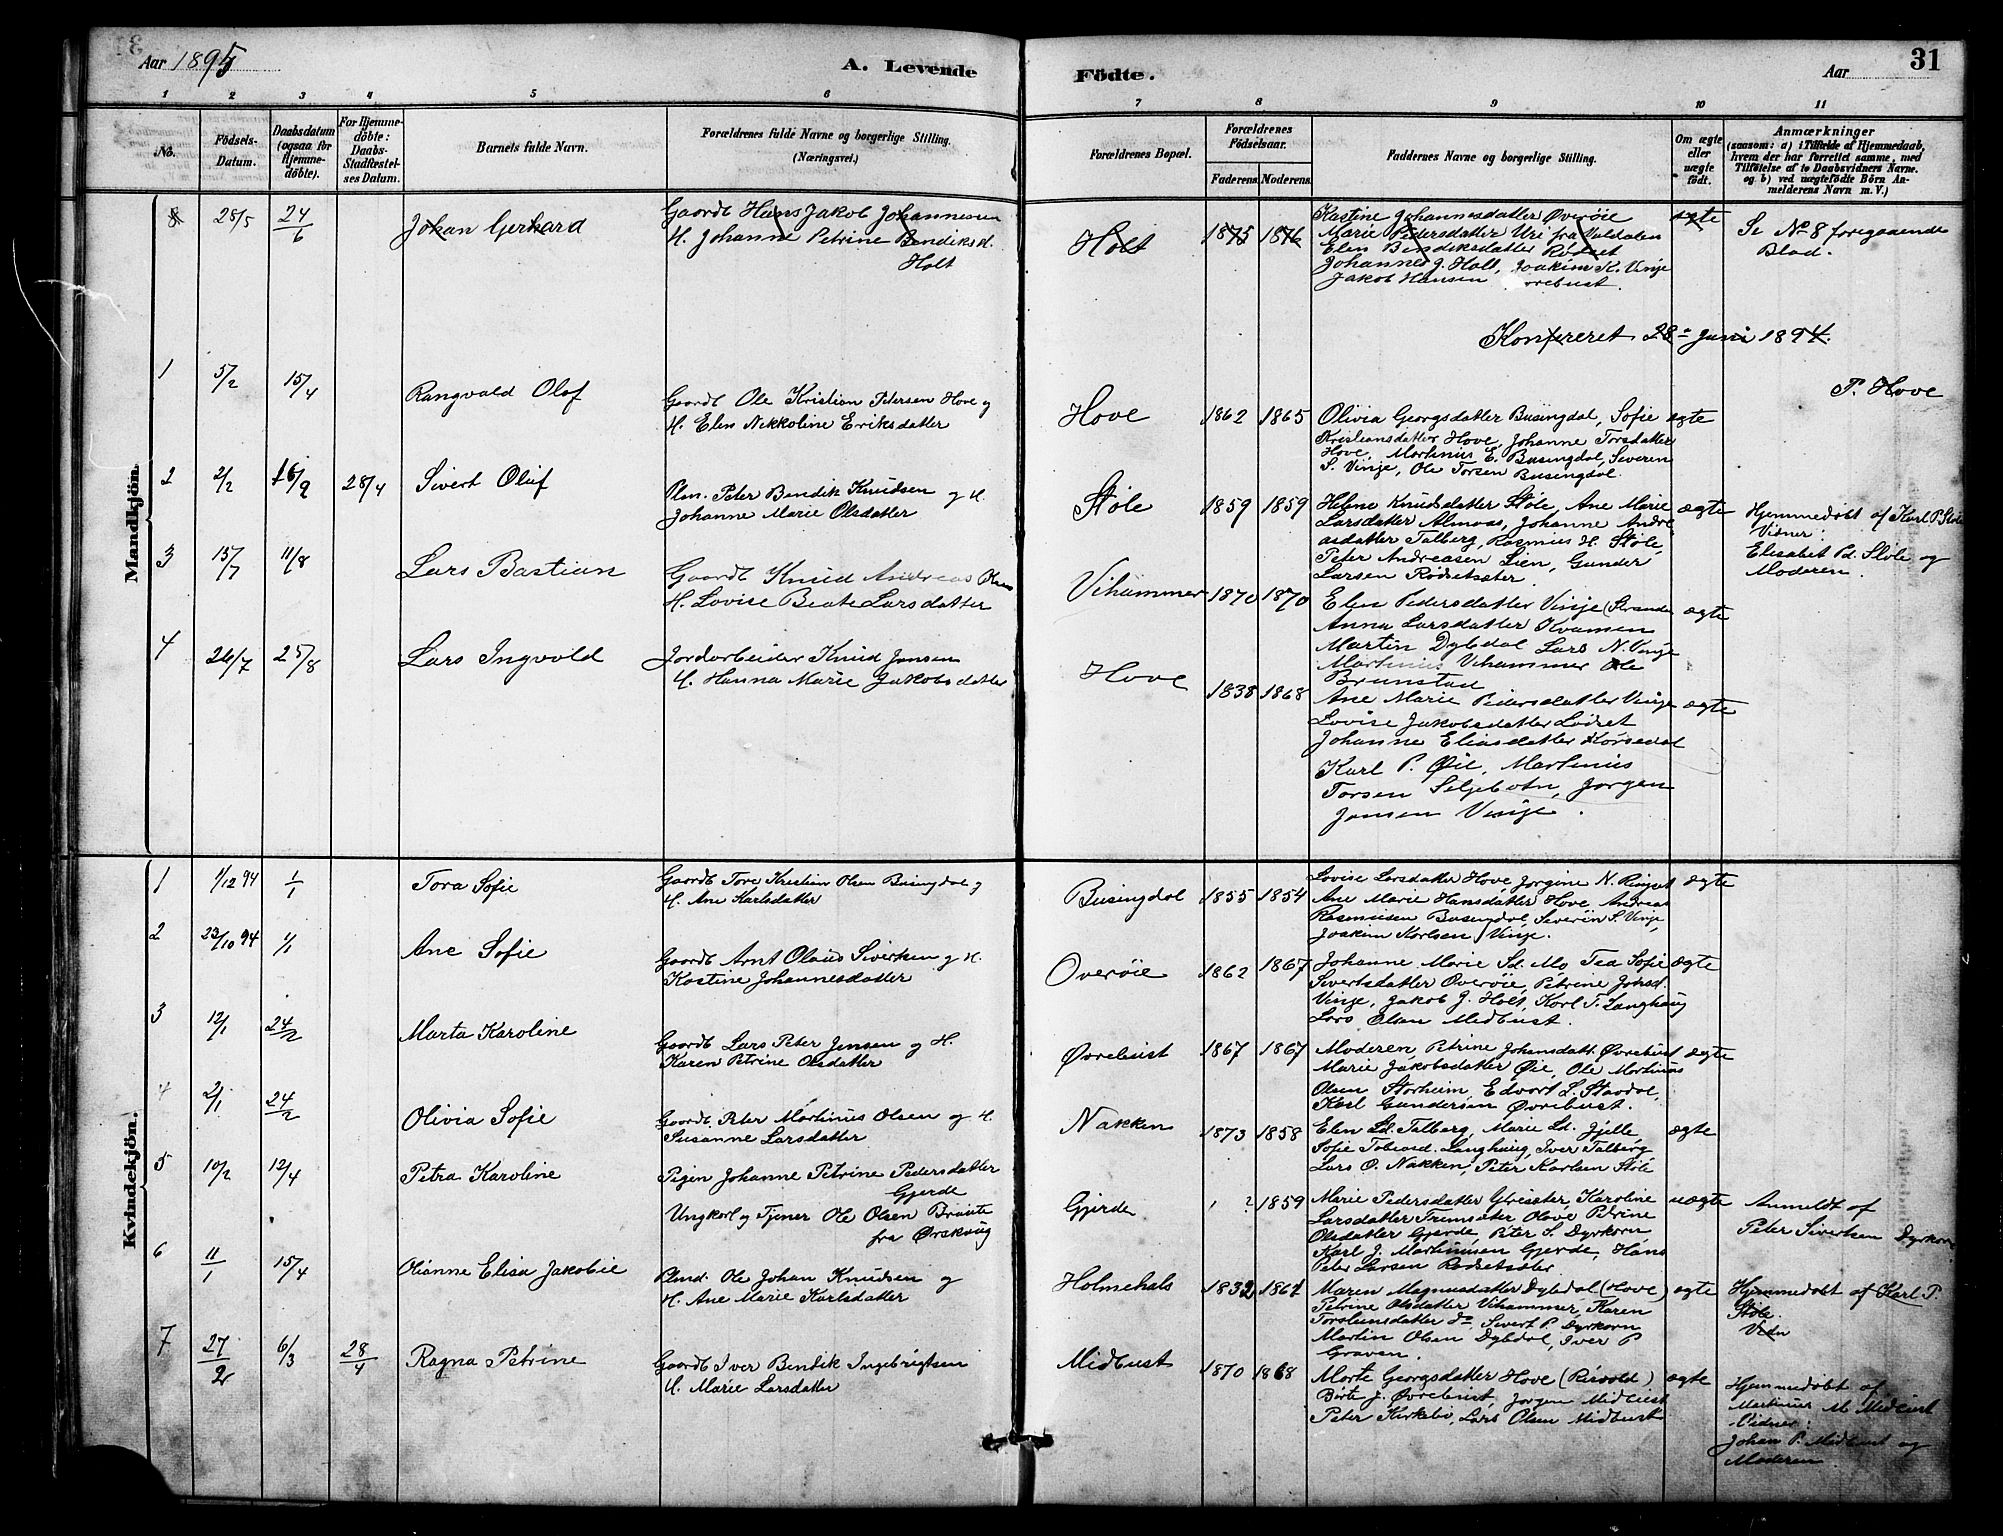 Aar 1895
A. Levende
Födte.
Aar
31
1 2 3 4 5 6 7 8 9 10 11
No.
Födsels-
Datum.
Daabsdatum
(ogsaa for
Hjemme-
döbte).
For Hjemme-
döbte:
Daabs-
Stadfæstel-
ses Datum.
Barnets fulde Navn.
Forældrenes fulde Navne og borgerlige Stilling.
(Næringsvei.)
Forældrenes Bopæl.
Forældrenes
Födselsaar.
Faderens.
Moderens.
Faddernes Navne og borgerlige Stilling.
Om ægte
eller
uægte
födt.
Anmærkninger
(saasom: a) i Tilfælde af Hjemmedaab,
hvem der har forrettet samme, med
Tilföielse af to Daabsvidners Navne.
og b) ved uægtefödte Börn An-
melderens Navn m. V.)
Mandkjön.
8 28/5 24/6 Johan Gerhard
Gaardb Hans Jakob Johannesen
H. Johanne Petrine Bendiksd.
Holt
Holt 1875 1876
Kastine Johannesdatter Overöie
Marie Pedersdatter Uri fra Valdalen
Elen Bendiksdatter Rödset
Johannes J. Holt, Joakim K. Vinje
Jakob Hansen Övrebust.
ægte
Se No 8 foregaaende
Blad.
Konfereret 28de Juni 1894.
P. Hove
1 5/2 15/4 Rangvald Olaf
Gaardb Ole Kristian Petersen Hove og
H. Elen Nikkoline Eriksdatter
Hove 1862 1865
Olivia Georgsdatter Busingdal, Sofie
Kristiansdatter Hove, Johanne Torsdatter
Hove, Martinus E. Busingdal, Severin
S. Vinje, Ole Torsen Busingdal.
ægte
2 2/2 16/2 28/4 Sivert Oluf
Plm. Peter Bendik Knudsen og H.
Johanne Marie Olsdatter
Støle 1859 1859
Helene Knudsdatter Støle, Ane Marie
Larsdatter Almaas, Johanne Andre
asdatter Talberg, Rasmus H. Støle,
Peter Andreasen Lien, Gunder
Larsen Rödsetsæter.
ægte
Hjemmedöbt af Karl P. Støle
Vidner:
Elisabet Pd. Støle og
Moderen.
3 15/7 11/8 Lars Bastian
Gaardb Knud Andreas Olsen
H. Lovise Beate Larsdatter
Vihammer 1870 1870
Elen Pedersdatter Vinje (Stranden
Anna Larsdatter Kvamen
Martin Dybdal Lars N. Vinje
Martinus Vihammer Ole
Brunstad
ægte
4 26/7 25/8 Lars Ingvald
Jordarbeider Knud Jensen
H. Hanna Marie Jakobsdatter
Hove 1838 1868
Ane Marie Pedersdatter Vinje
Lovise Jakobsdatter Lödset
Johanne Eliasdatter Korsedal
Karl P. Øie, Martinus
Torsen Seljebotn, Jorgen
Jansen Vinje.
ægte
Kvindekjön.
1 1/12 94 1/1 Tora Sofie
Gaardb Tore Kristian Olsen Busingdal og
H. Ane Karlsdatter
Busingdal 1855 1854
Lovise Larsdatter Hove, Jorgine N. Ringset
Ane Marie Hansdatter Hove, Andreas
Rasmusen Busingdal, Severin S. Vinje,
Joakim Karlsen Vinje.
ægte
2 23/10 94 1/1 Ane Sofie
Gaardb Arnt Olaus Sivertsen og H.
Kastine Johannesdatter
Overöie 1862 1867
Johanne Marie Sd. Mo, Tea Sofie
Sivertsdatter Overöie, Petrine Johsd.
Vinje, Jakob J. Holt, Karl T. Langhaug
Lars Olsen Midtbust.
ægte
3 12/1 24/2 Marta Karoline
Gaardb Lars Peter Jensen og H.
Karen Petrine Olsdatter
Øvrebust 1867 1867
Moderen, Petrine Johansdatt. Øvrebust
Marie Jakobsdatter Øie, Ole Martinus
Olsen Storheim, Edvart L. Stavdal,
Karl Gundersen Øvrebust.
ægte
4 2/1 24/2 Olivia Sofie
Gaardb. Peter Martinus Olsen og H.
Susanne Larsdatter
Nakken 1873 1858
Elen Ld. Talberg, Marie Ld. Gjelle
Sofie Langhaug, Iver Talberg,
Lars O. Nakken, Peter Karlsen Støle
ægte
5 10/2 12/4 Petra Karoline
Pigen Johanne Petrine Pedersdatter
Gjerde
Ungkarl og Tjener Ole Olsen Braute
fra Ørskoug
Gjerde ? 1859
Marie Pedersdatter Karoline
Larsdatter Fremsæter Olave Petrine
Olsdatter Gjerde, Peter S. Dyrkorn
Karl J. Martinusen Gjerde, Hans
Peter Larsen Rödsetsæter.
uægte
Anmeldt af
Peter Sivertsen Dyrkorn
6 11/1 15/4 Olianne Elisa Jakobie
Plmd. Ole Johan Knudsen og
H. Ane Marie Karlsdatter
Holmehals 1832 1861
Maren Magnusdatter Dybdal (Hove)
Petrine Olsdatter Vihammer, Karen
Torsteinsdatter do, Sivert P. Dyrkorn
Martin Olsen Dybdal, Iver P
Graven.
ægte
Hjemmedöbt af Karl P.
Støle.
Vidn
7 27/2 6/3 28/4 Ragna Petrine
Gaardb Iver Bendik Ingebrigtsen
H. Marie Larsdatter
Midtbust 1870 1868
Marte Georgsdatter Hove (Risvold)
Birte J. Øvrebust, Jorgen Midtbust
Peter Kirkebö, Lars Olsen Midtbust
ægte
Hjemmedöbt af
Martinus M. Midtbust
Vidner:
Johan P. Midtbust og
Moderen.